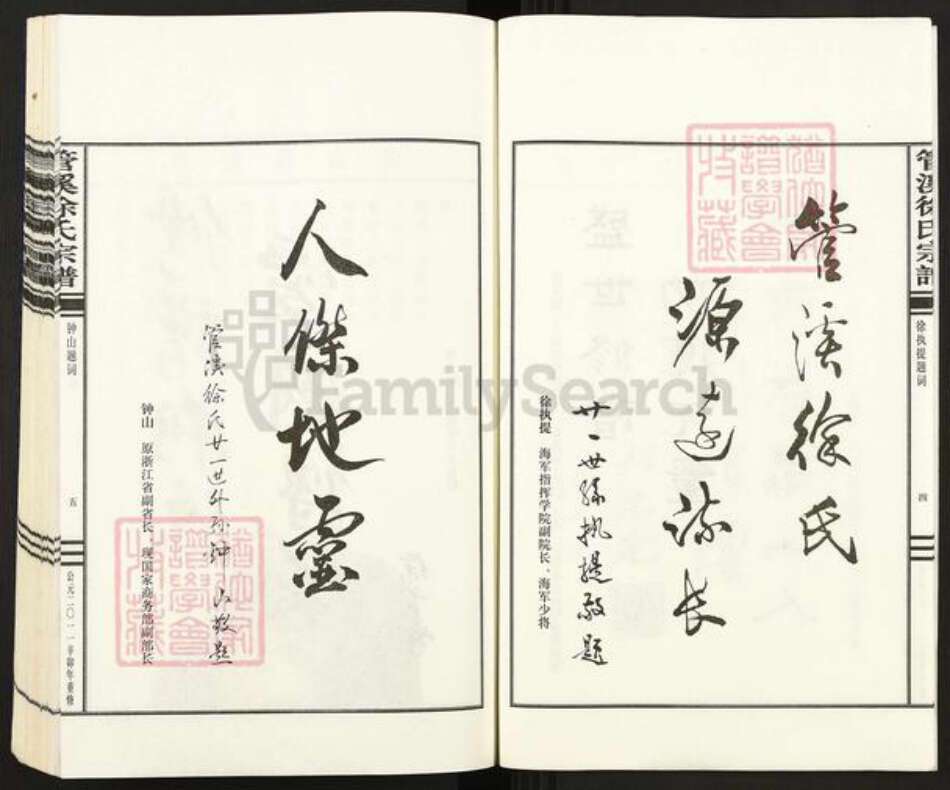 管溪徐氏宗譜
徐执提题词
四
管溪徐氏
源远流长
廿一世孙执提敬题
徐执提 海军指挥学院副院长、海军少将
猶他家
譜學會
收藏
人傑地靈
管溪徐氏廿一世外孙钟山敬题
钟山 原浙江省副省长、现国家商务部副部长
猶他家
譜學會
收藏
管溪徐氏宗譜
钟山题词
五
公元二〇一一辛卯年重修
FamilySearch